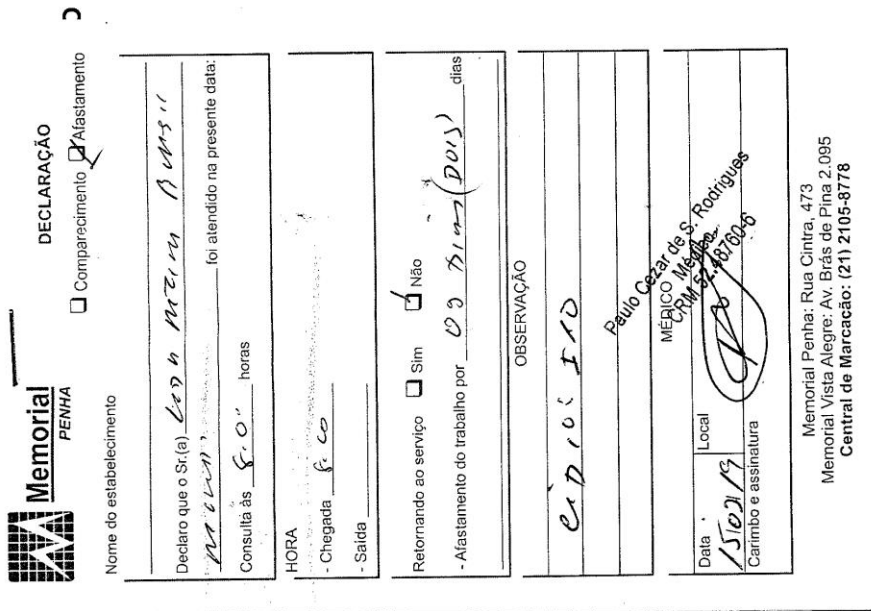 Memorial
PENHA
DECLARAÇÃO
Comparecimento Afastamento
Nome do estabelecimento
Declaro que o Sr.(a)
foi atendido na presente data:
Consulta às horas
HORA
- Chegada 8:00
- Saída
Retornando ao serviço Sim Não
- Afastamento do trabalho por (DOIS) dias
OBSERVAÇÃO
CID 10: I10
Paulo Cezar de S. Rodrigues
MÉDICO
Médico
CRM 52.48760-6
Data Local
15/02/19
Carimbo e assinatura
Memorial Penha: Rua Cintra, 473
Memorial Vista Alegre: Av. Brás de Pina 2.095
Central de Marcação: (21) 2105-8778